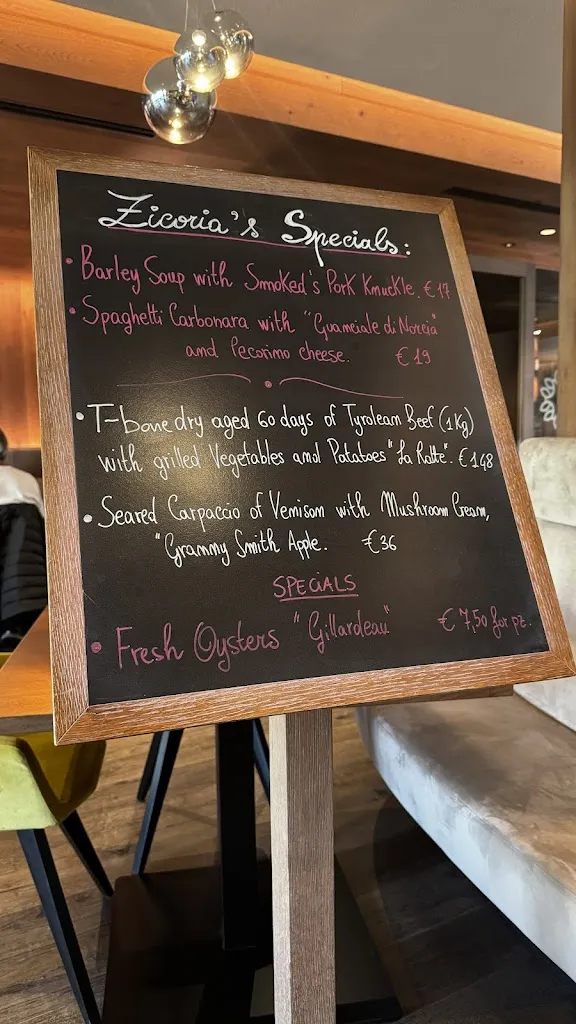 Zicoria's Specials:
• Barley Soup with Smoked's Pork Knuckle. €17
• Spaghetti Carbonara with "Guanciale di Norcia"
and Pecorino cheese. €19
• T-bone dry aged 60 days of Tyrolean Beef (1Kg)
with grilled Vegetables and Potatoes "La Ratte". €148
• Seared Carpaccio of Venison with Mushroom Cream,
"Granny Smith Apple. €36
SPECIALS
• Fresh Oysters "Gillardeau" € 7,50 for pz.